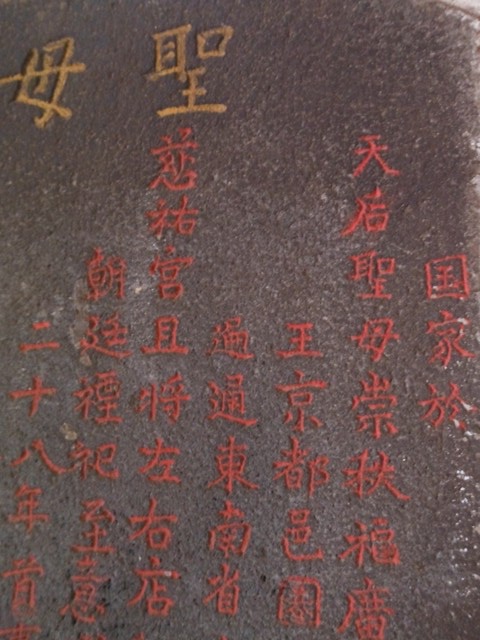 聖母
国家於
天后聖母崇秩福廣
王京都邑
遍通東南省
慈祐宮且将左右店
朝廷禋祀至意
二十八年首